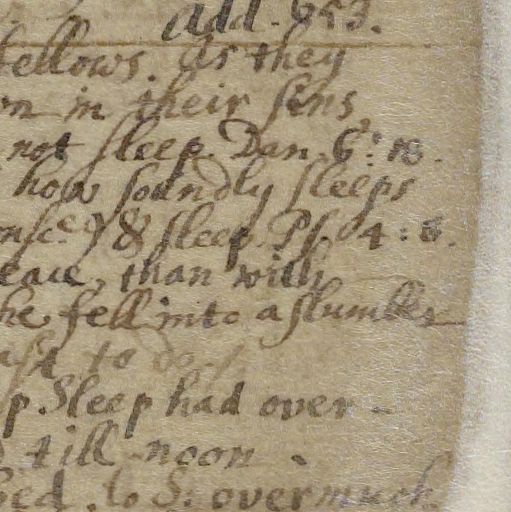 add. 653.
fellows. as they
in their sins
not sleep Dan. 6: 18.
how soundly sleeps
& sleep. Ps. 4: 8.
than with
he fell into a slumber
to do
Sleep had over-
till noon.
to S: overmuch.